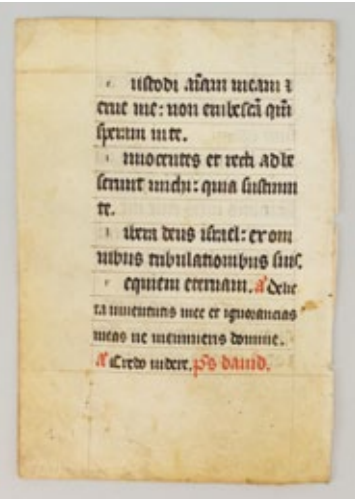 ustodi aīam meam ⁊
erue me : non erubescā qm̄
speraui in te.
nnocentes et recti adhe
serunt michi : quia sustinui
te.
ibera deus israel : ex om
nibus tribulationibus suis.
equiem eternam. a Delic
ta iuuentutis mee et ignorancias
meas ne memineris domine.
a Credo uidere. p̄s dauid.